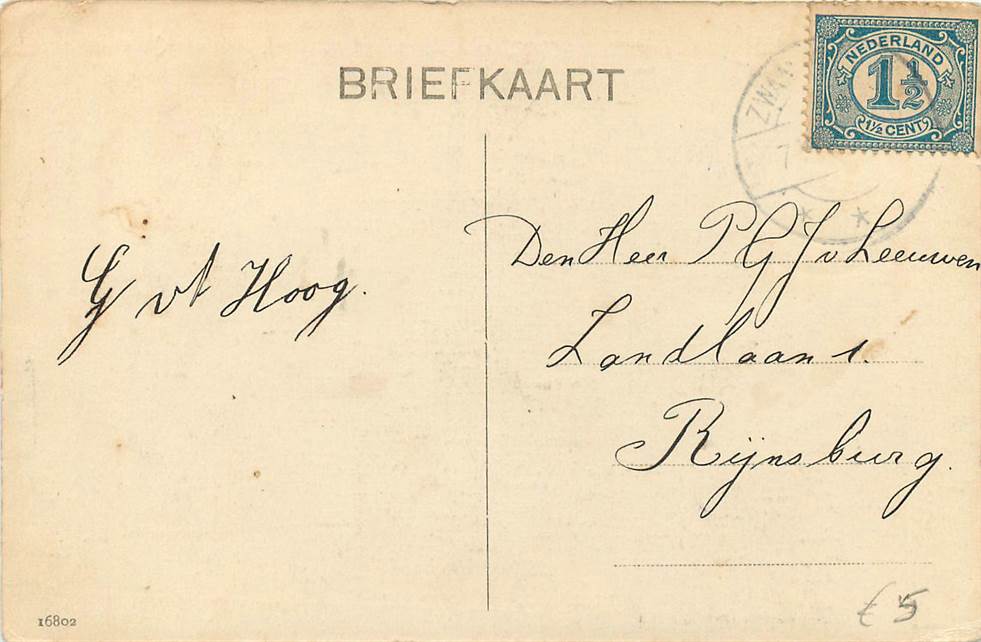 BRIEFKAART
NEDERLAND
1 1/2
1½ CENT
G v't Hoog.
Den Heer P G J v Leeuwen
Zandlaan 1.
Rijnsburg.
16802
€ 5